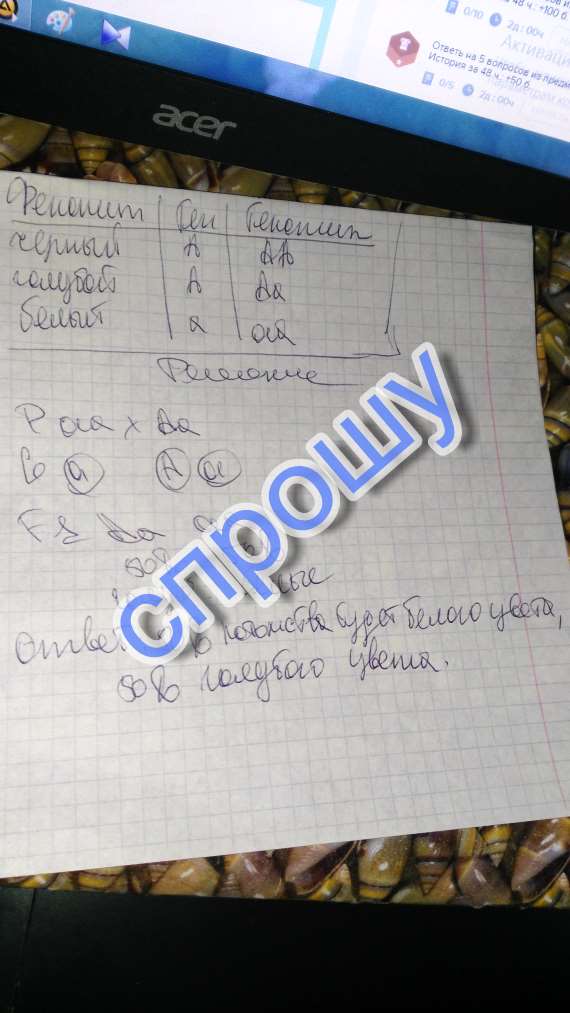 48 ч.: +100 б
0/10 2д : 00ч
Активаци
Ответь на 5 вопросов из предм
История за 48 ч.: +50 б.
0/5 2д : 00ч
acer
Фенотип Ген Генотип
черный А АА
голубой А Аа
белый а аа
Решение
Р аа х Аа
G а А а
F1 Аа
50%
Ответ потомства будет белого цвета,
50% голубого цвета.
спрошу